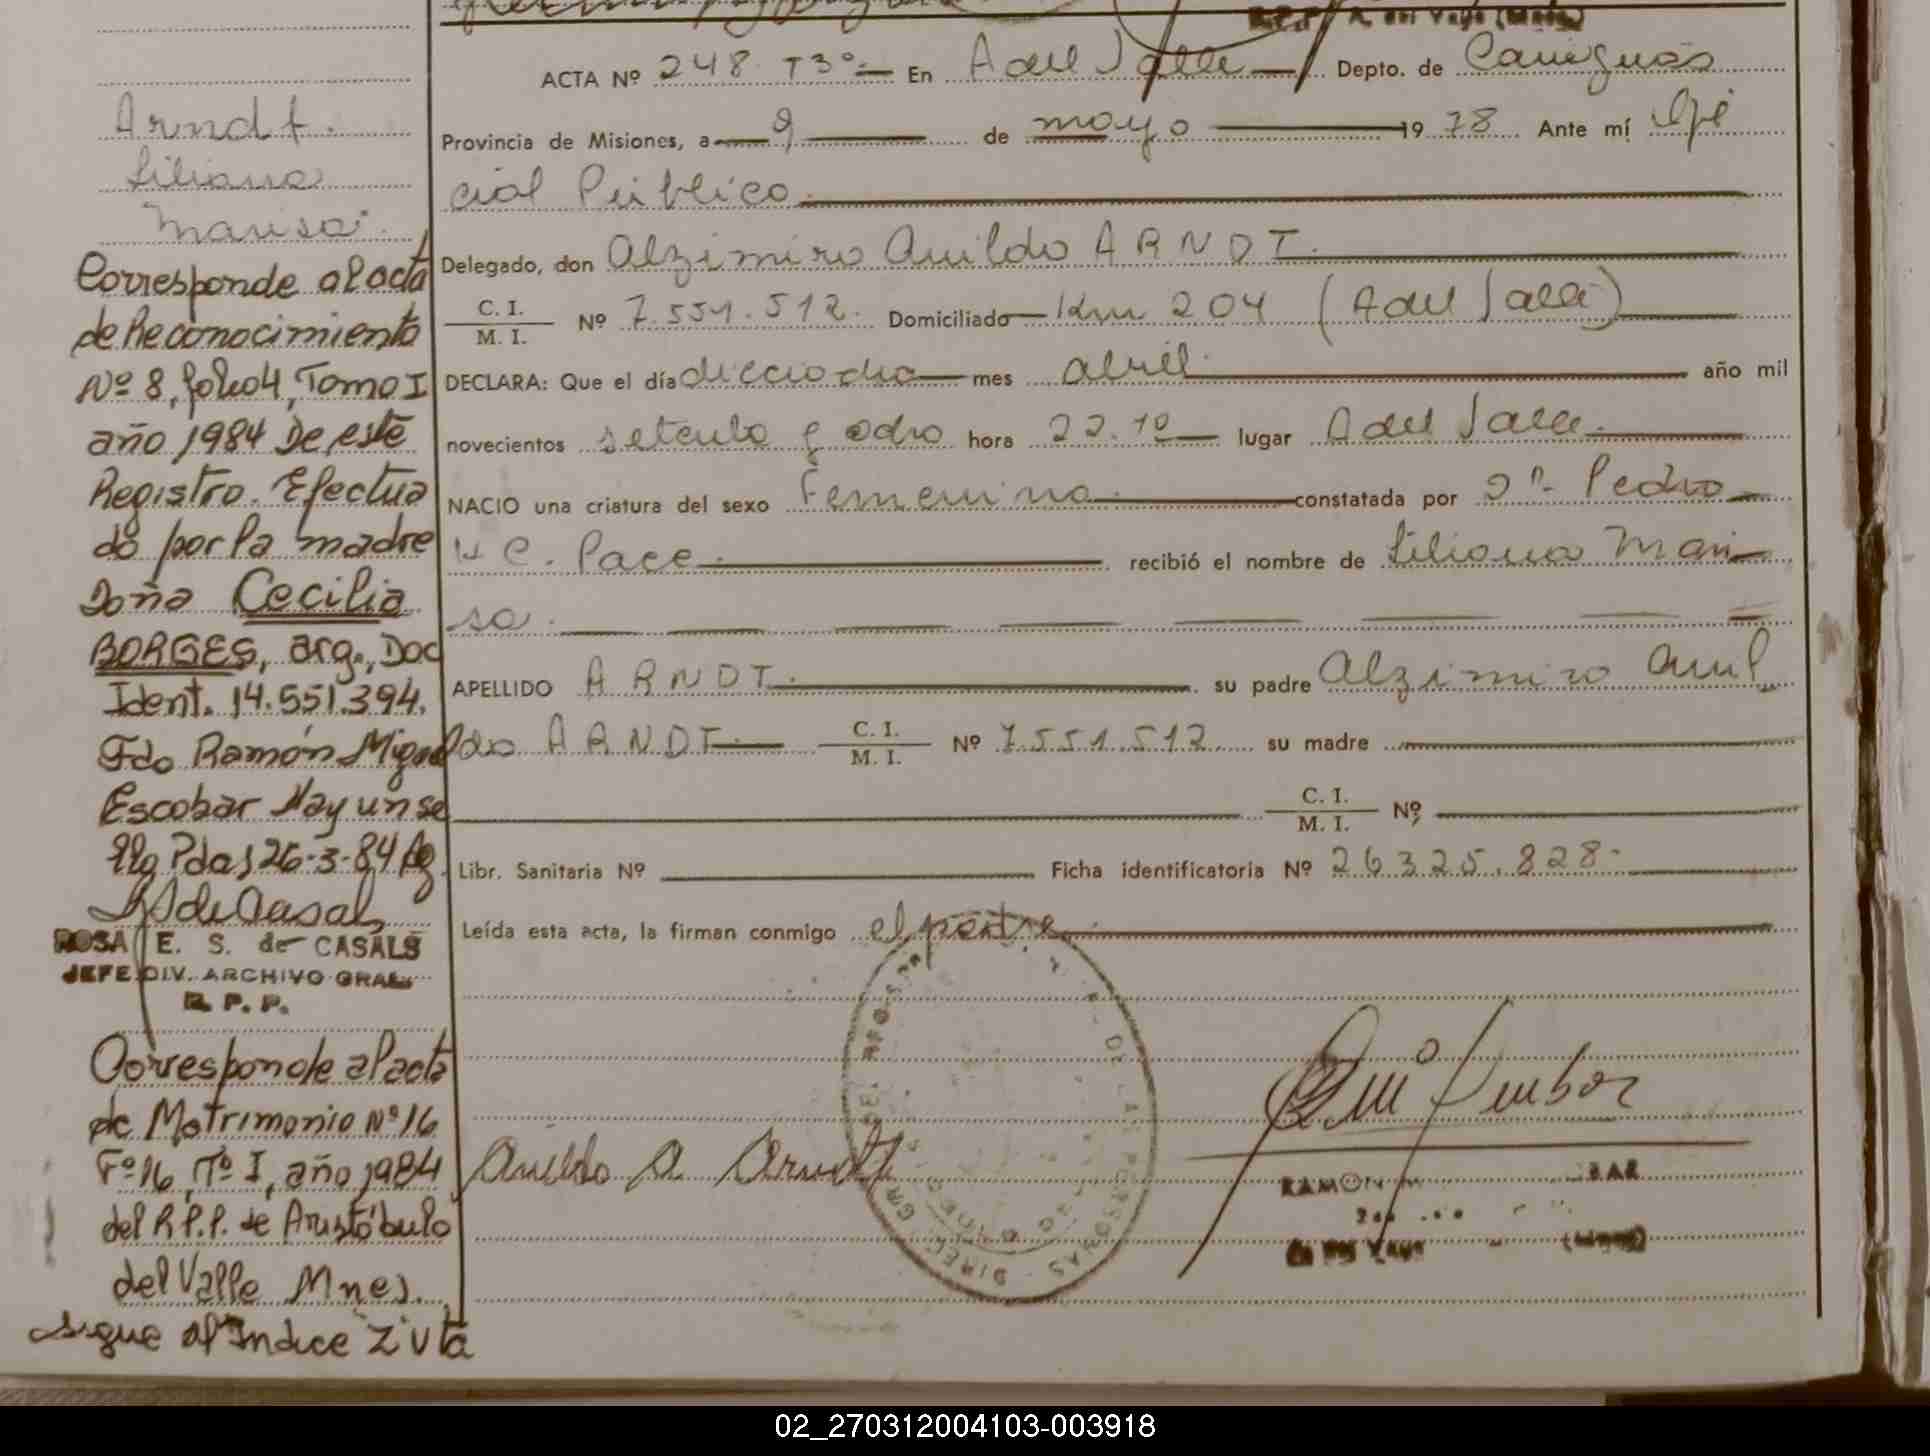 R.P.P. A. del Valle (Mnes.)
ACTA Nº 248 T3º En A del Valle Depto. de Cainguás
Provincia de Misiones, a 9 de mayo 1978 Ante mí Ofi
cial Público
Delegado, don Alzimiro Anildo ARNDT
C. I.
M. I. Nº 7.551.512. Domiciliado Km 204 (A del Valle)
DECLARA: Que el día dieciocho mes abril año mil
novecientos setenta y ocho hora 22.10 lugar A del Valle.
NACIO una criatura del sexo Femenino constatada por Dn. Pedro
H C. Pace recibió el nombre de Liliana Mari
sa.
APELLIDO ARNDT su padre Alzimiro Anil
do ARNDT C. I.
M. I. Nº 7.551.512 su madre
C. I.
M. I. Nº
Libr. Sanitaria Nº Ficha identificatoria Nº 26325.828-
Leída esta acta, la firman conmigo el padre
Anildo A Arndt
RAMON
A. del Valle (Mnes)
Arndt.
Liliana
Marisa.
Corresponde al acta
de Reconocimiento
Nº 8, folio 4, Tomo I
año 1984 De este
Registro. Efectua
do por la madre
Doña Cecilia
BORGES, arg., Doc
Ident. 14.551.394.
Fdo Ramón Miguel
Escobar Hay un se
llo Pdas 26-3-84
ROSA E. S. de CASALS
JEFE DIV. ARCHIVO GRAL
R. P. P.
Corresponde al acta
de Matrimonio Nº 16
Fº 16, Tº I, año 1984
del R.P.P. de Aristóbulo
del Valle Mnes.
Sigue al Indice
02_270312004103-003918